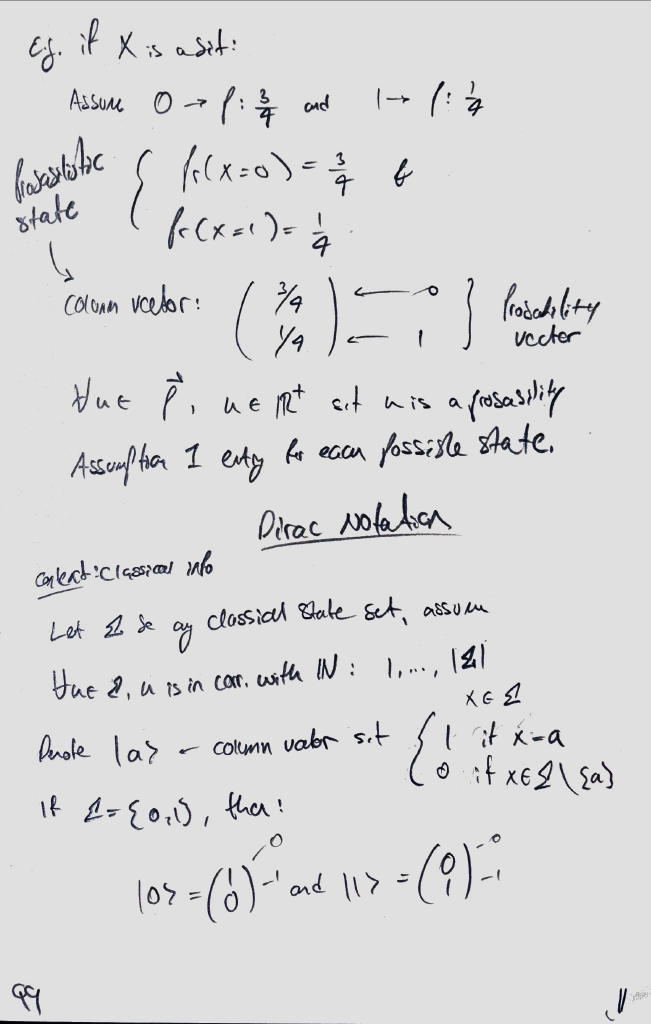 E.g. if X is a bit:
Assume 0 → P: 3/4 and 1 → P: 1/4
Probabilistic state { Pr(X=0) = 3/4 &
Pr(X=1) = 1/4
column vector: ( 3/4 1/4 ) ← 0 ← 1 } Probability vector
∀u ∈ P⃗, u ∈ ℝ⁺ s.t u is a probability
Assumption 1 entry for each possible state.
Dirac Notation
Context: Classical info
Let Σ be any classical state set, assume
∀u ∈ Σ, u is in corr. with ℕ : 1, ..., |Σ|
x ∈ Σ
Denote |a> - column vector s.t { 1 if x=a
0 if x∈Σ\{a}
If Σ={0,1}, then:
|0> = (1 0) -0 -1 and |1> = (0 1) -0 -1